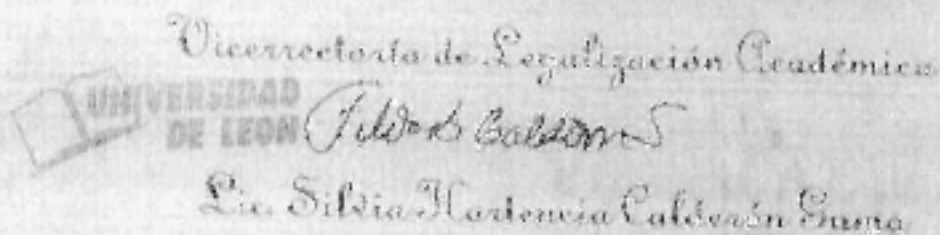 Vicerrectoría de Legalización Académica
UNIVERSIDAD
DE LEON
Lic. Silvia Hortencia Calderón